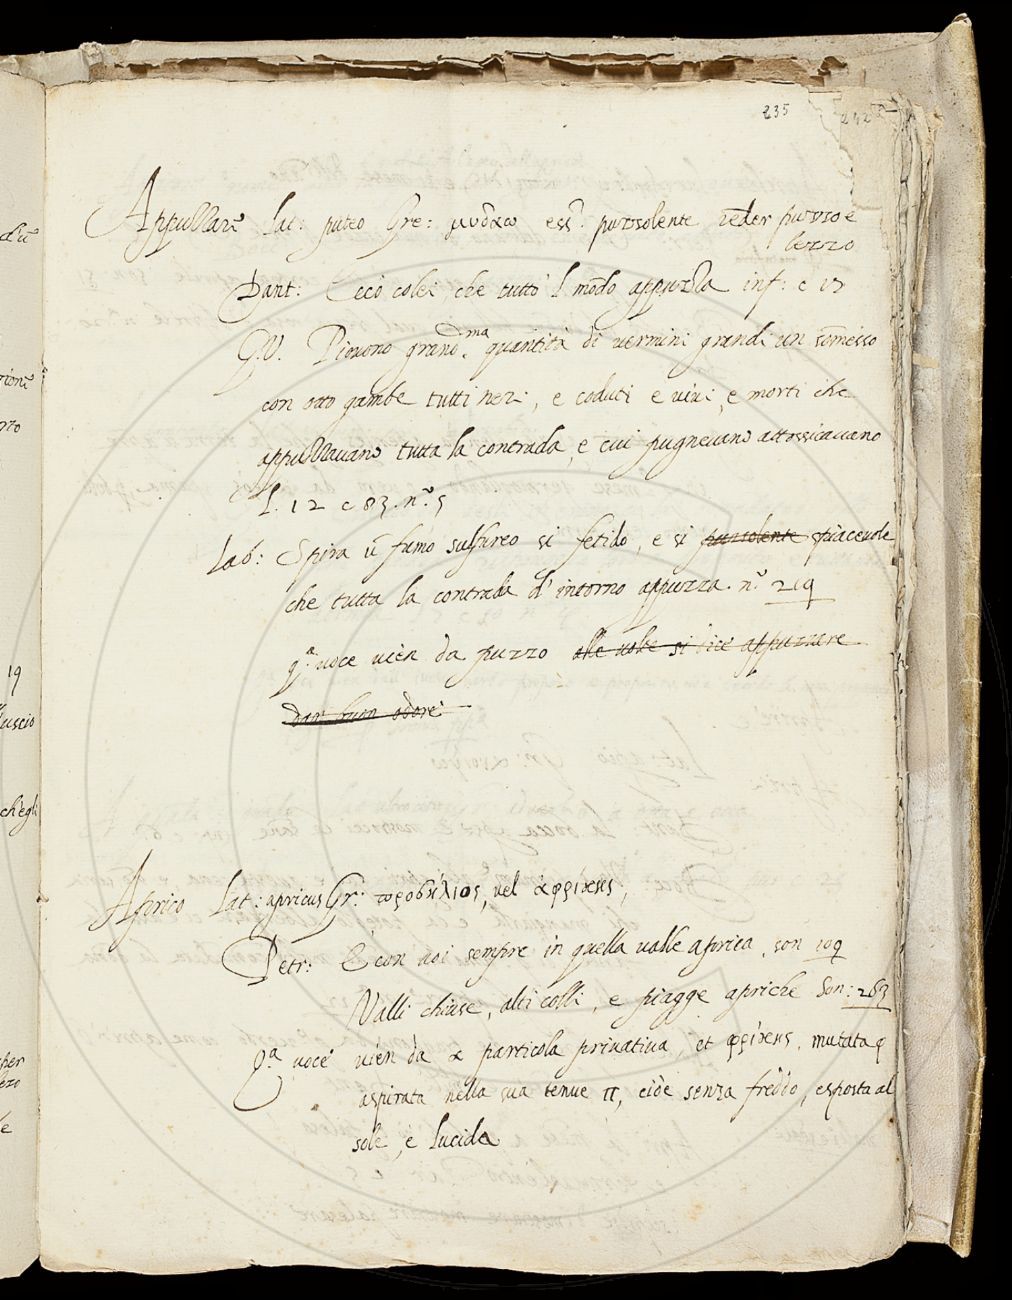 235
242
Appuzzare Lat: puteo Gre: μυδάω ess: puzzolente render puzzo e
lezzo
Dant: Ecco colei, che tutto l modo appuzza inf: c 17
G.V. Piovono grand.ma quantità di vermini grandi un somesso
con otto gambe tutti neri, e coduti e vivi, e morti che
appuzzavano tutta la contrada, e cui pugnevano attossicavano
l. 12 c 83. n.º 5
Lab: Spira ū fumo sulfureo si fetido, e si puzzolente spiacevole
che tutta la contrada d'intorno appuzza. n.º 219
q.ª voce vien da puzzo alle volte si dice appuzzare
dar buon odore
Aprico Lat: apricus Gr: προσήλιος, vel ἄφρικης,
Petr: E con noi sempre in quella valle aprica, son 109
Valli chiuse, alti colli, e piagge apriche Son: 263
Q.ª voce vien da α particola privativa, et φρίκης, mutata φ
aspirata nella sua tenue π, cioè senza freddo, esposta al
sole, e lucida
19
ch'egli